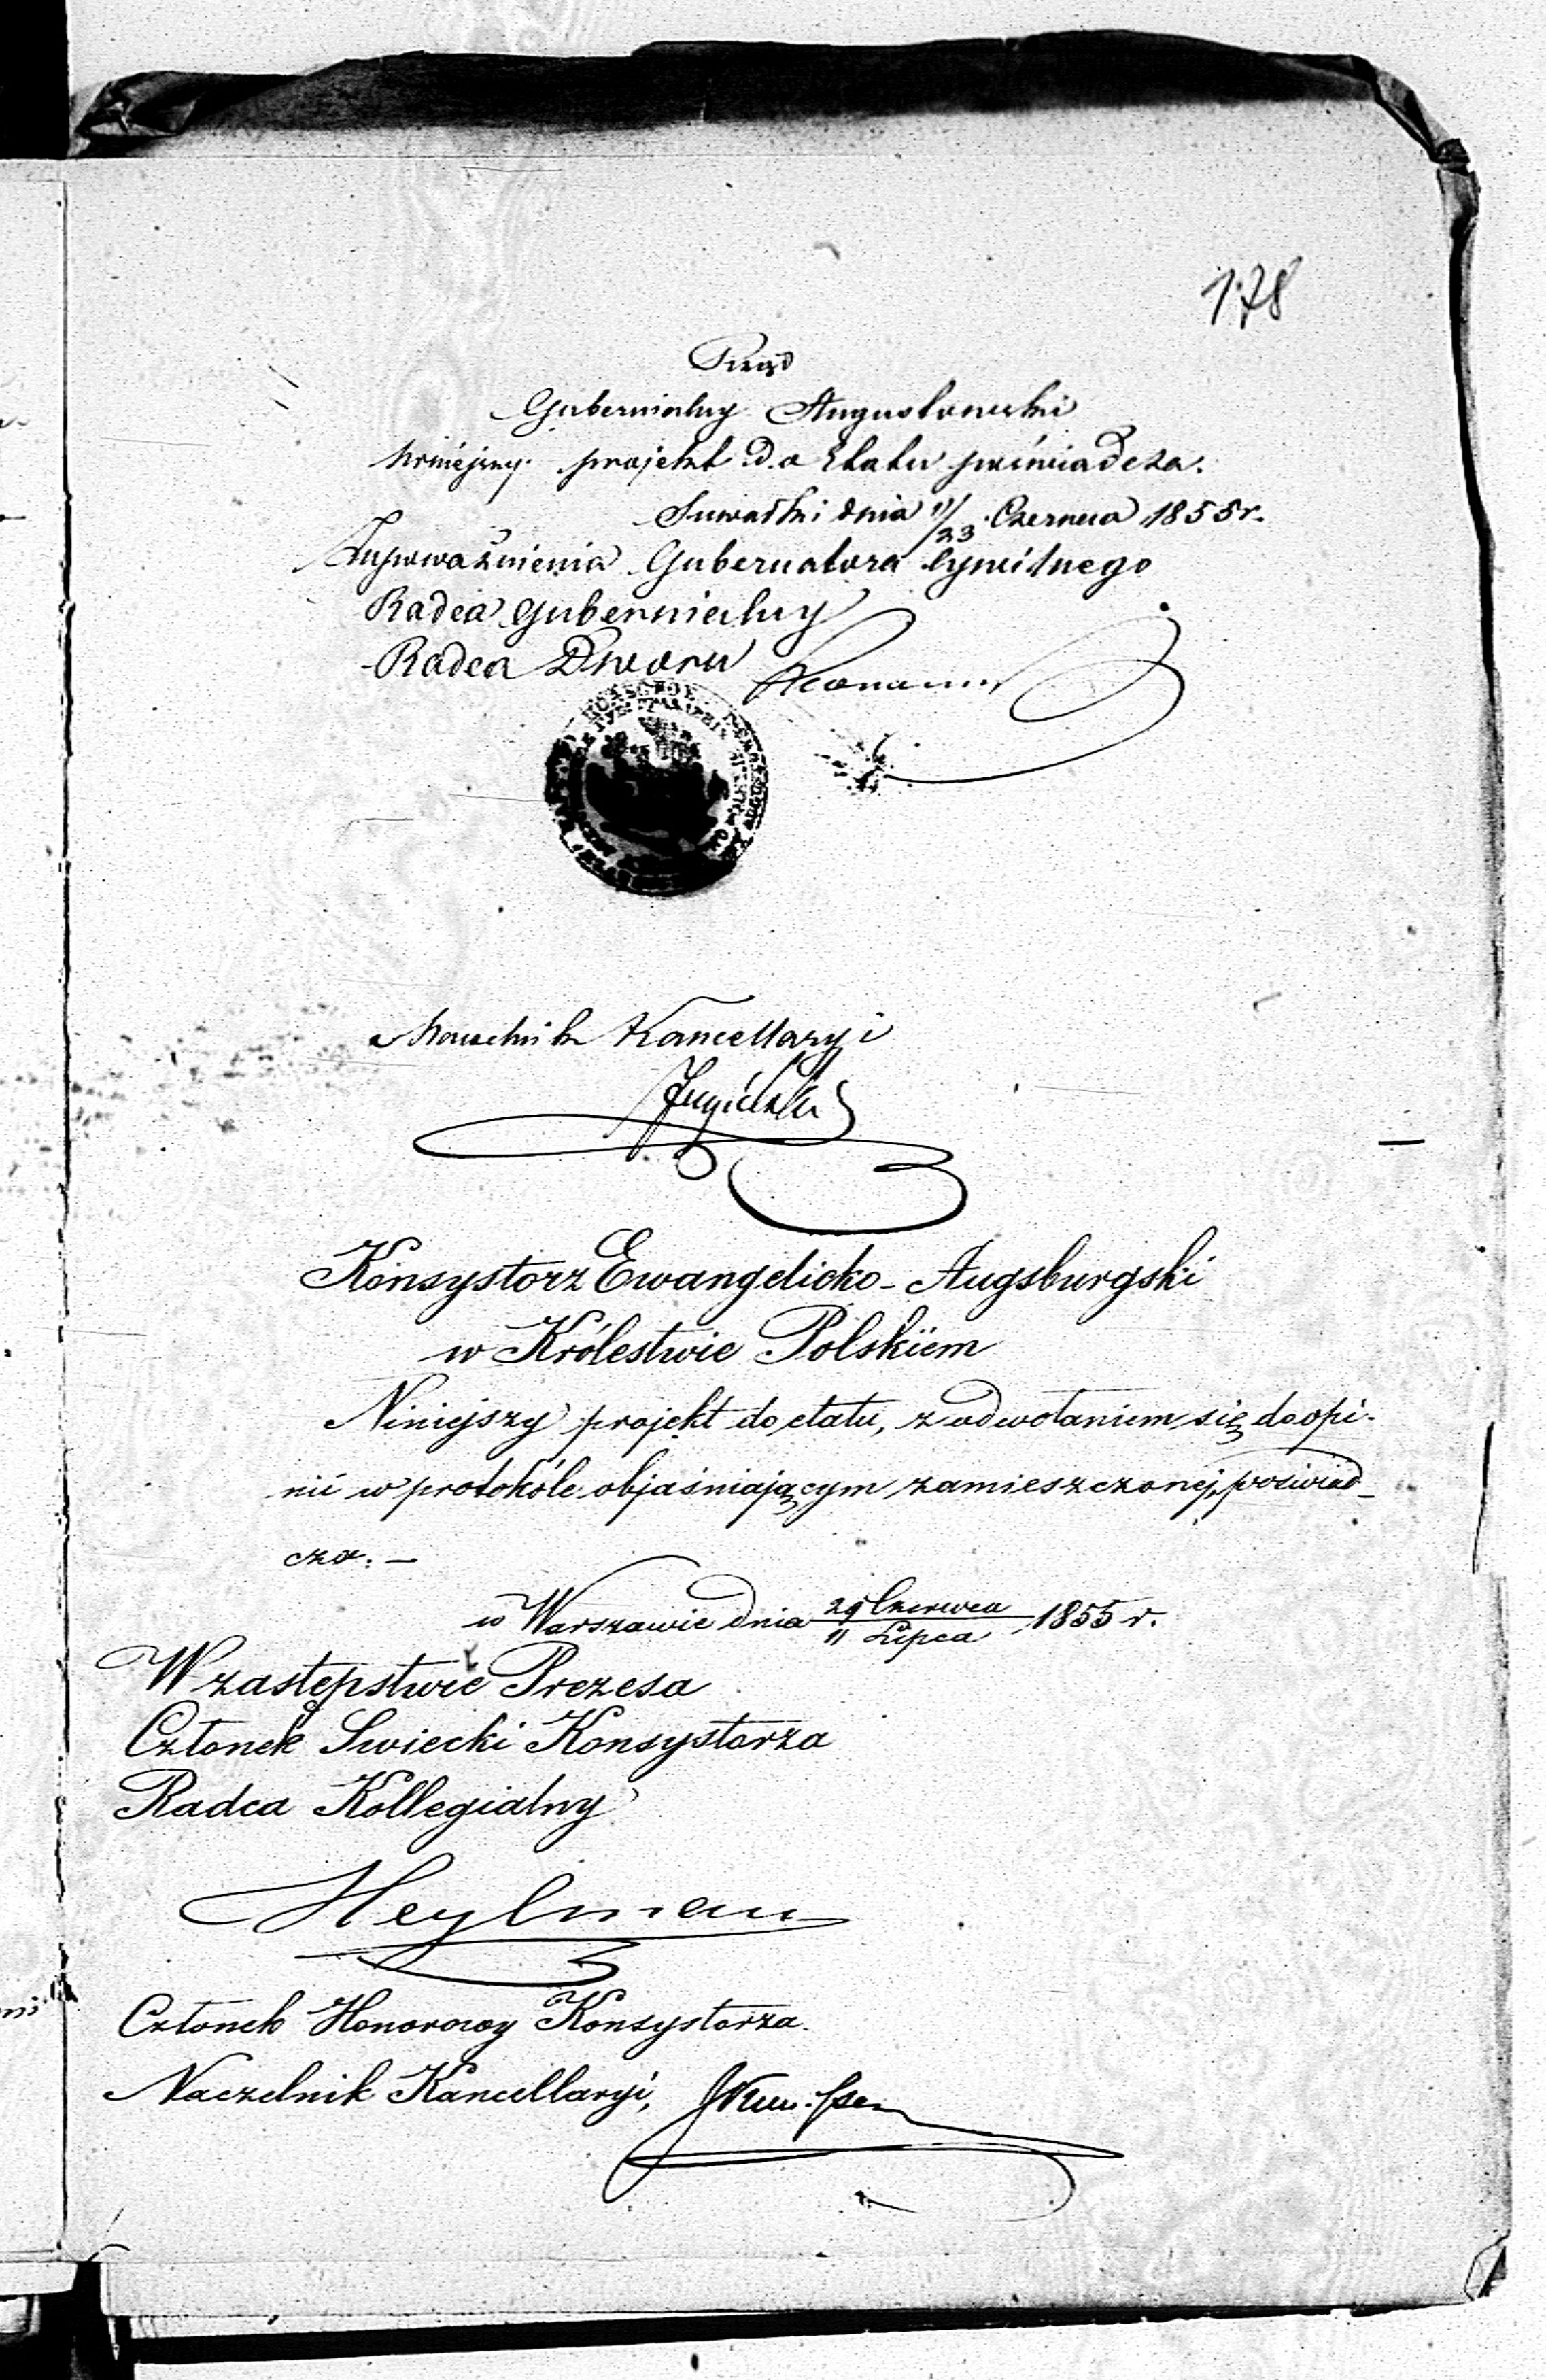 178
Rząd
Gubernialny Augustowski
Niniejszy projekt do Etatu poświadcza.
Suwałki dnia 11/23 Czerwca 1855 r.
Z upoważnienia Gubernatora Cywilnego
Radca Gubernialny
Radca Dworu
Naczelnik Kancellaryi
Konsystorz Ewangelicko-Augsburgski
w Królestwie Polskiem
Niniejszy projekt do etatu, z odwołaniem się do opi-
nii w protokóle objaśniającym zamieszczonej, poświad-
cza. —
w Warszawie dnia 29 Czerwca / 11 Lipca 1855 r.
W zastępstwie Prezesa
Członek Swiecki Konsystorza
Radca Kollegialny
Heylman
Członek Honorowy Konsystorza.
Naczelnik Kancellaryi,